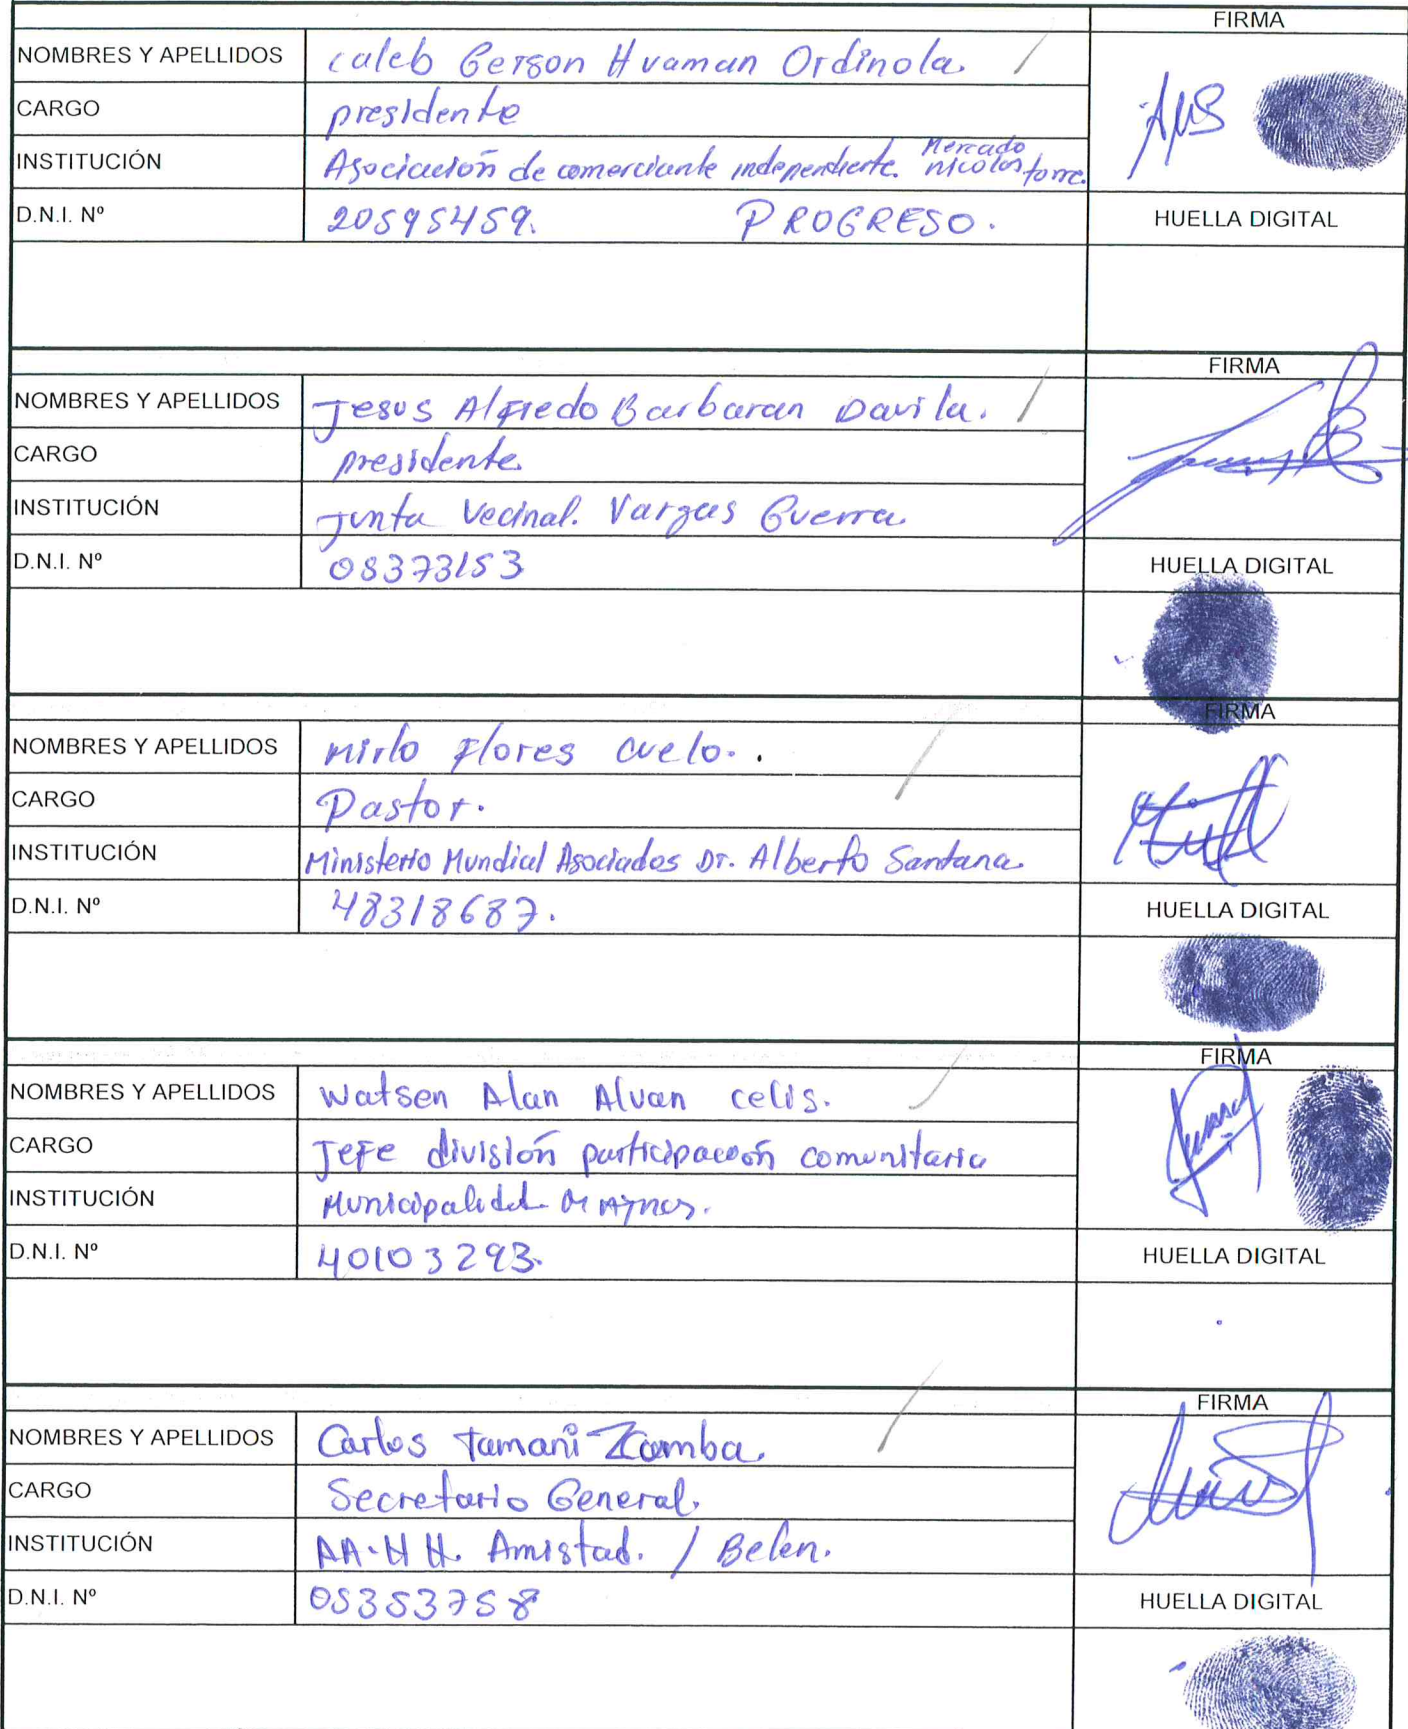 FIRMA
NOMBRES Y APELLIDOS caleb Gerson Huaman Ordinola.
CARGO presidente
INSTITUCIÓN Asociación de comerciante independiente. Mercado nicolas torre.
D.N.I. Nº 20595459. PROGRESO.
HUELLA DIGITAL
FIRMA
NOMBRES Y APELLIDOS Jesus Alfredo Barbaran Davila.
CARGO presidente
INSTITUCIÓN Junta Vecinal. Vargas Guerra
D.N.I. Nº 05373153
HUELLA DIGITAL
FIRMA
NOMBRES Y APELLIDOS Mirlo Flores Cuelo.
CARGO Pastor.
INSTITUCIÓN Ministerio Mundial Asociados Dr. Alberto Santana
D.N.I. Nº 48318687.
HUELLA DIGITAL
FIRMA
NOMBRES Y APELLIDOS Watsen Alan Alvan celis.
CARGO Jefe división participación comunitaria
INSTITUCIÓN Municipalidad Maynas.
D.N.I. Nº 40103293.
HUELLA DIGITAL
FIRMA
NOMBRES Y APELLIDOS Carlos Tamani Zamba.
CARGO Secretario General.
INSTITUCIÓN AA.HH. Amistad. / Belen.
D.N.I. Nº 05353758
HUELLA DIGITAL